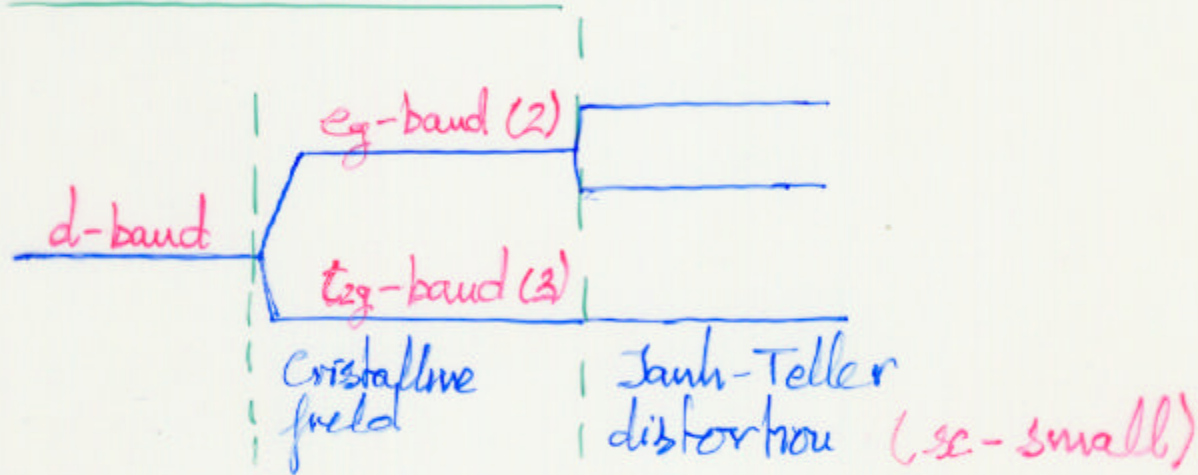 eg-band (2)
d-band
t2g-band (3)
Cristalline
field
Janh-Teller
distortion (sc-small)